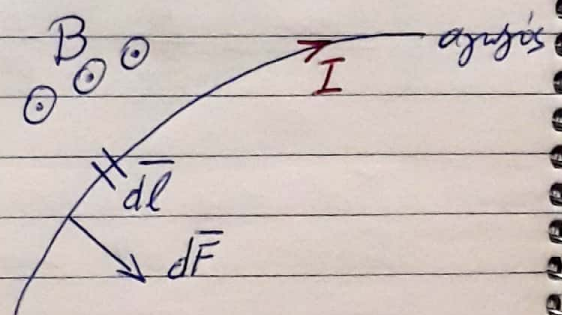 B
αγωγός
I
dl̅
dF̅